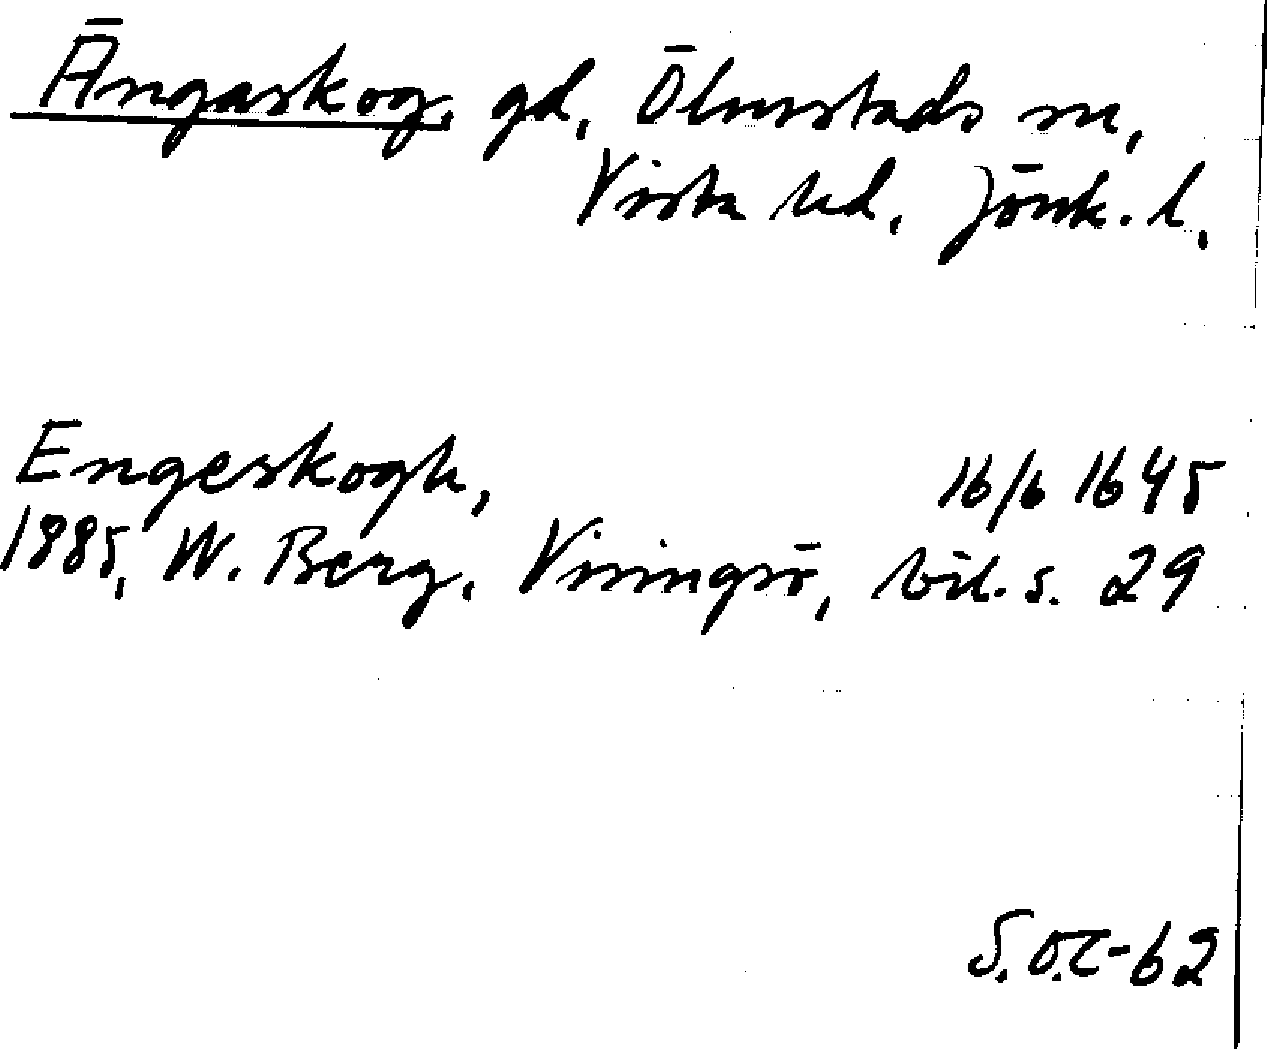 Ängaskog, gd, Ölmstads sn,
Vista hd, Jönk. l.
Engeskogh, 16/6 1645
1885, W. Berg, Visingsö, bil. s. 29
S.O.C-62